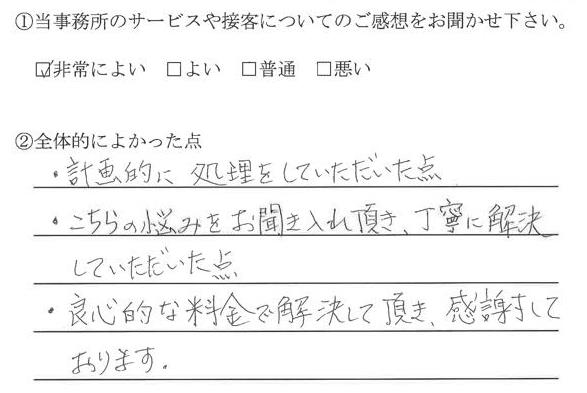 ①当事務所のサービスや接客についてのご感想をお聞かせ下さい。
☑非常によい □よい □普通 □悪い
②全体的によかった点
・計画的に処理をしていただいた点
・こちらの悩みをお聞き入れ頂き、丁寧に解決
していただいた点
・良心的な料金で解決して頂き、感謝して
おります。